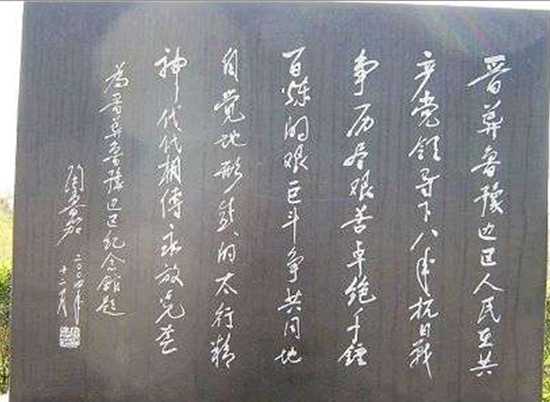 晋冀鲁豫边区人民在共
产党领导下八年抗日战
争历尽艰苦卓绝千锤
百炼的艰巨斗争共同地
自觉地形成的太行精
神代代相傳永放光芒
為晋冀鲁豫边区纪念館题
陶鲁笳
二〇〇四年
十二月